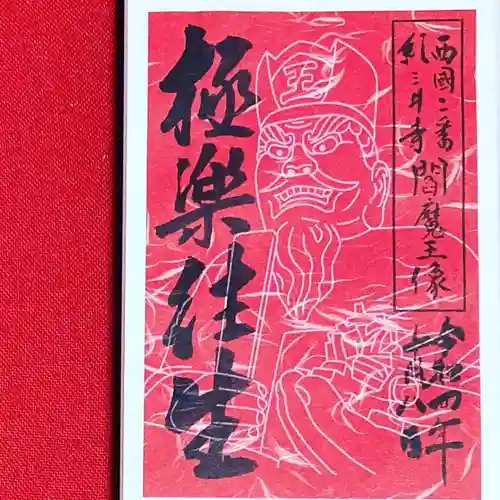 西國二番
紀三井寺 閻魔王像
令和四年
十月八日
極楽往生
王